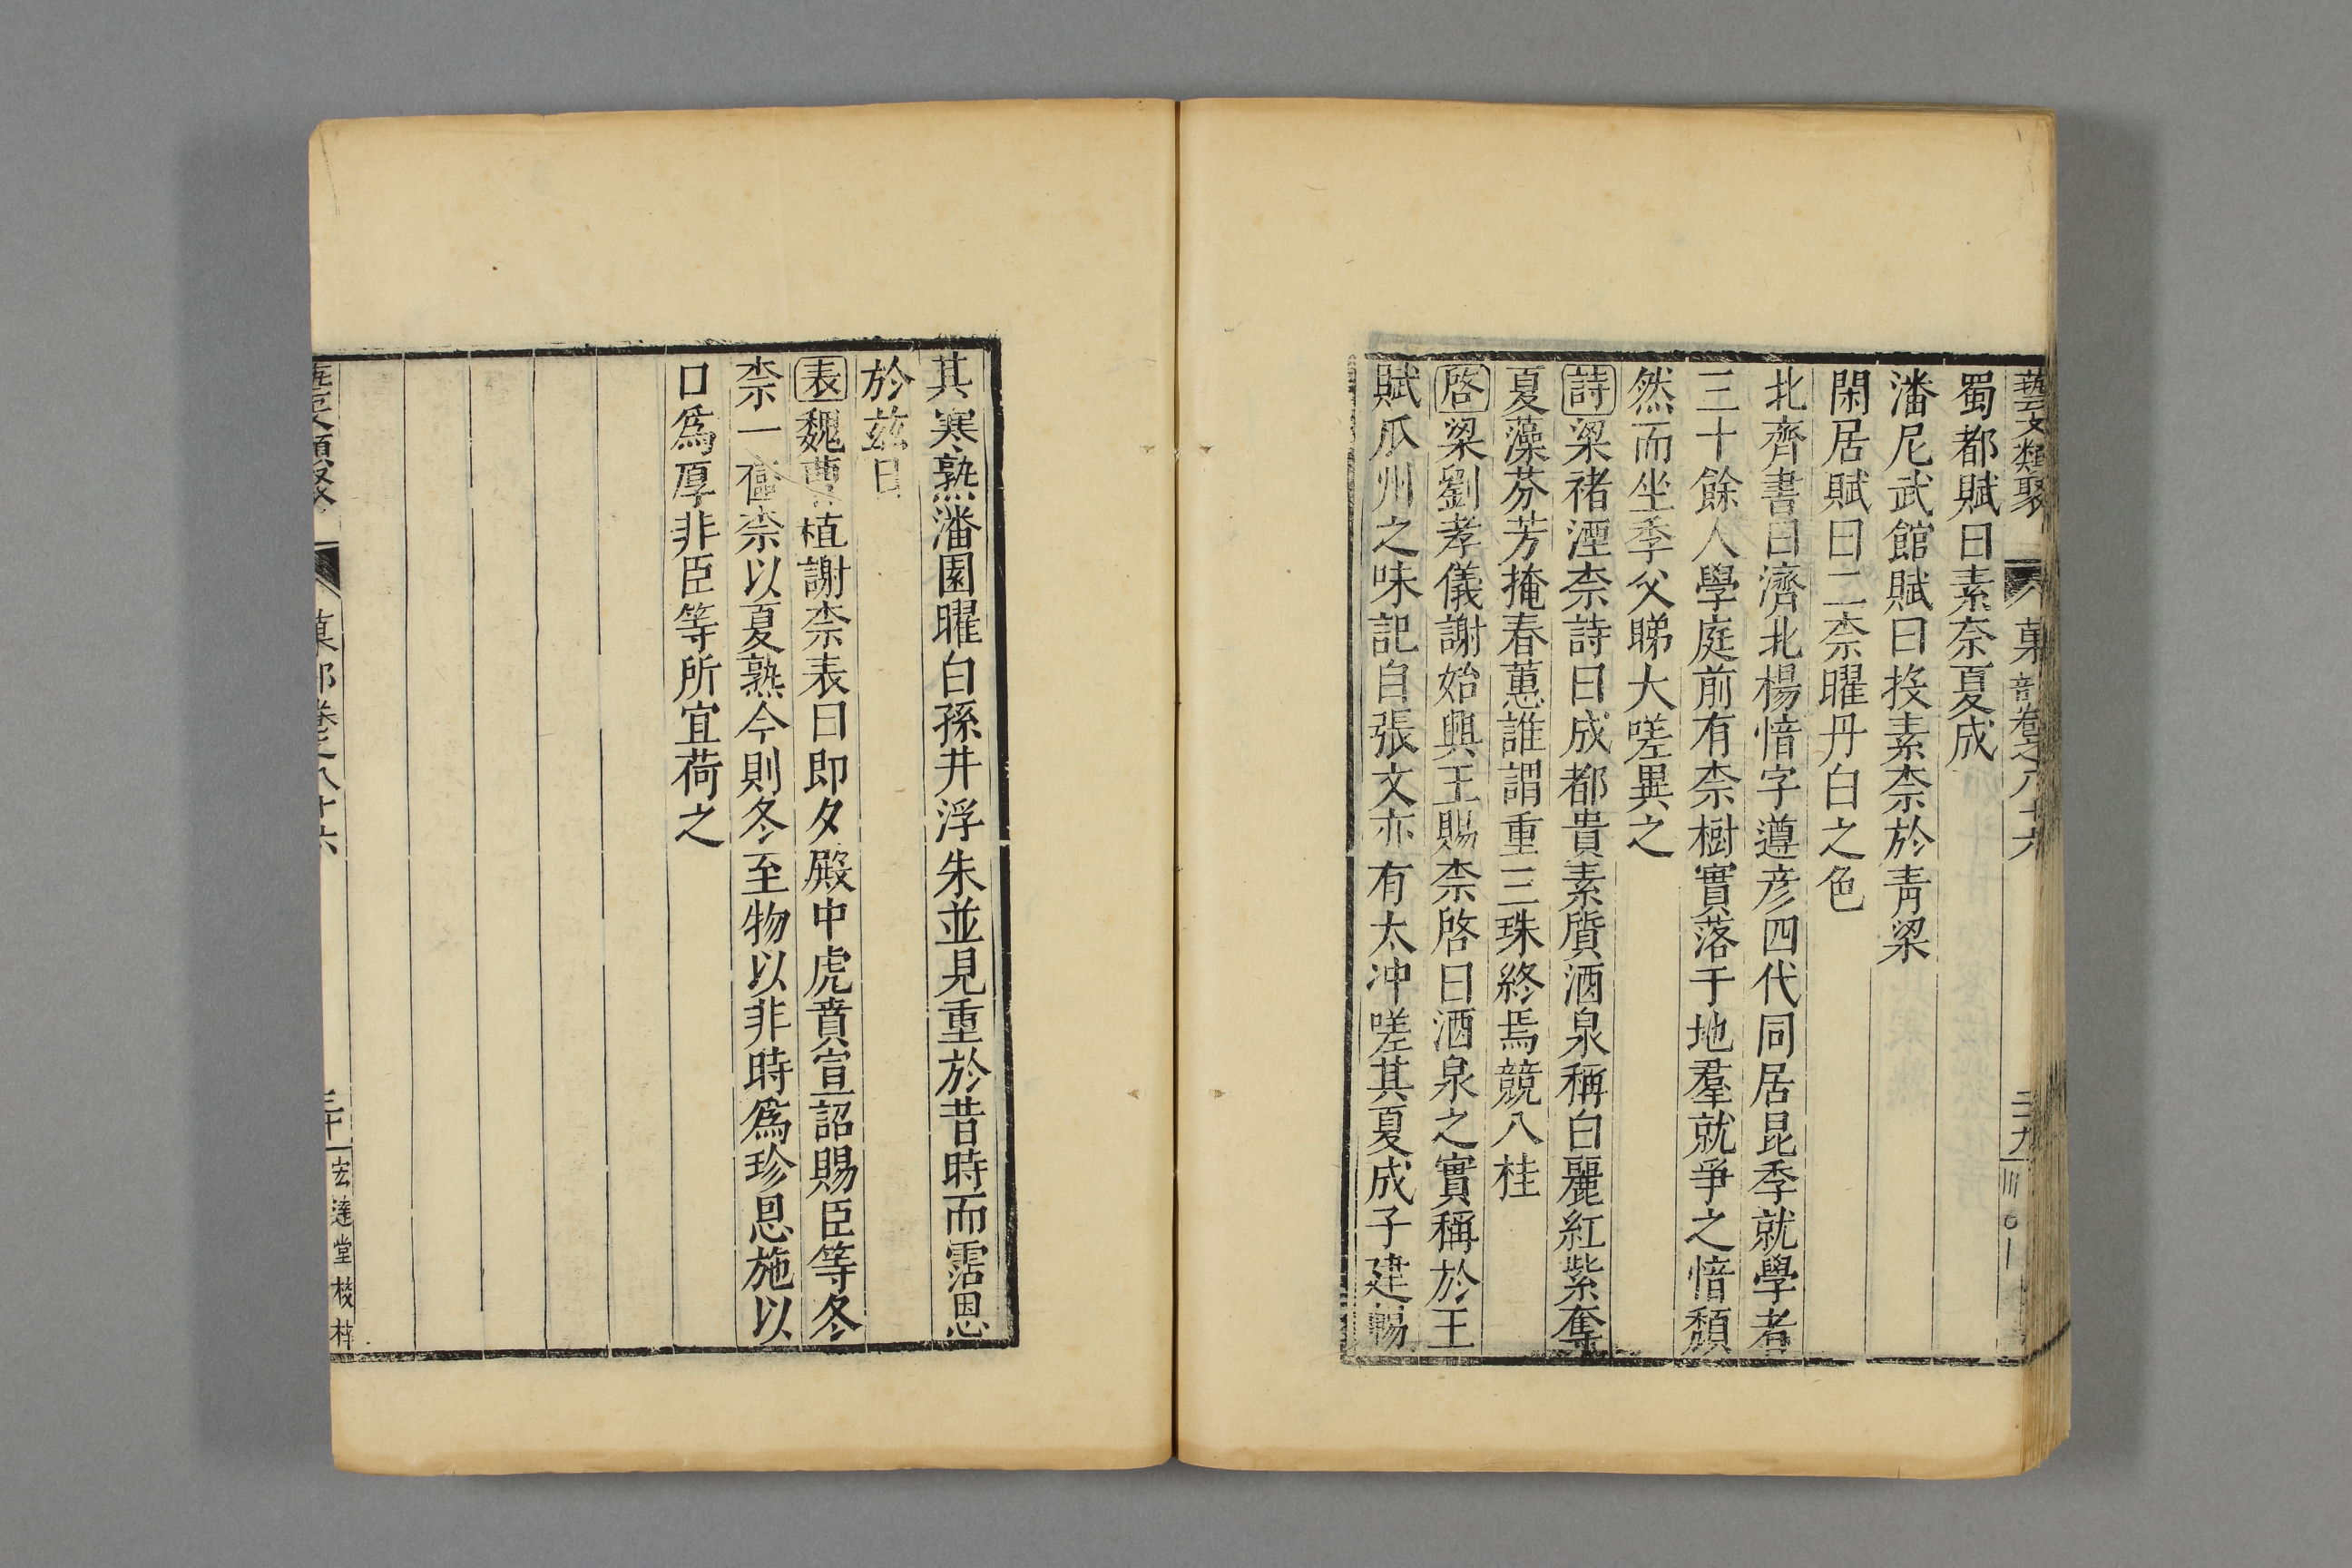 藝文類聚 菓部卷之八十六 二十九
蜀都賦曰素奈夏成
潘尼武館賦曰投素柰於青梁
閑居賦曰二柰曜丹白之色
北齊書曰濟北楊愔字遵彥四代同居昆季就學者
三十餘人學庭前有柰樹實落于地羣就爭之愔頹
然而坐季父睇大嗟異之
詩梁褚湮柰詩曰成都貴素質酒泉稱白麗紅紫奪
夏藻芬芳掩春蕙誰謂重三珠終焉競八桂
啓梁劉孝儀謝始興王賜柰啓曰酒泉之實稱於王
賦瓜州之味記自張文亦有太冲嗟其夏成子建暢
其寒熟潘園曜白孫井浮朱並見重於昔時而霑恩
於兹日
表魏曹植謝柰表曰即夕殿中虎賁宣詔賜臣等冬
柰一奩柰以夏熟今則冬至物以非時爲珍恩施以
口爲厚非臣等所宜荷之
藝文類聚 菓部卷之八十六 三十 宏達堂校梓